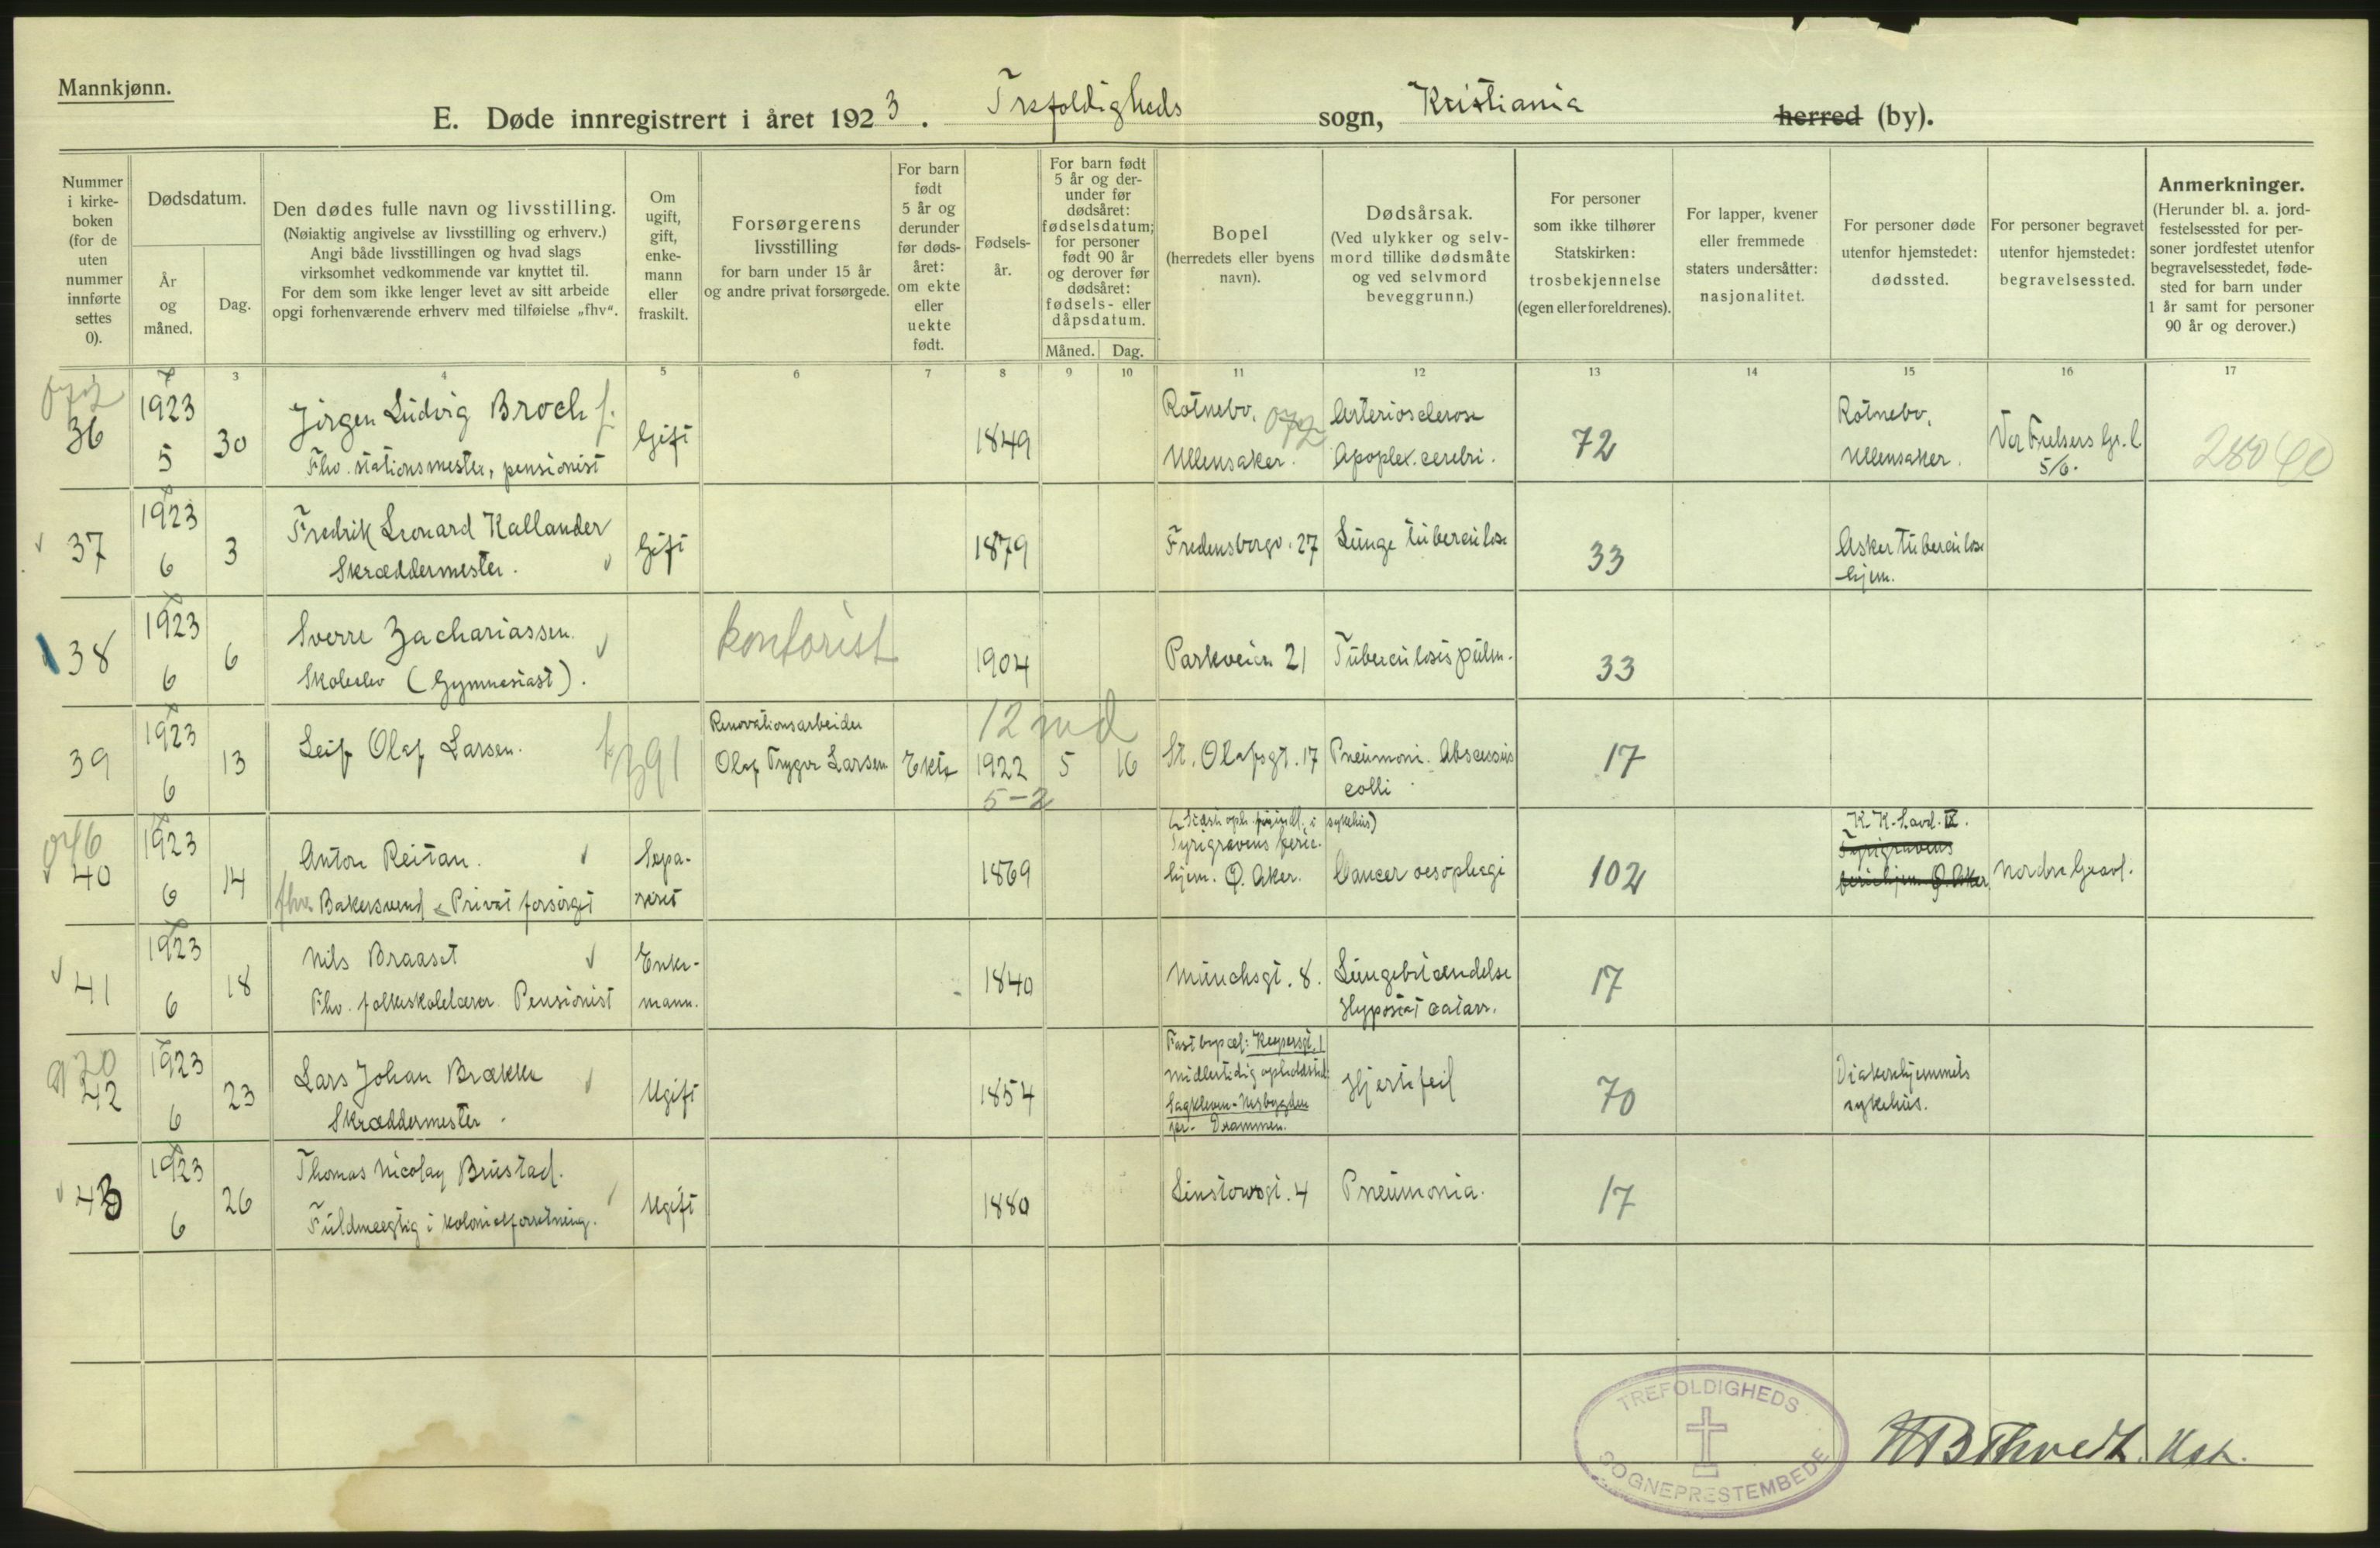 Mannkjønn.
E. Døde innregistrert i året 1923. Trefoldigheds sogn, Kristiania herred (by).
Nummer i kirke-boken (for de uten nummer innførte settes 0).
Dødsdatum.
År og måned.
Dag.
Den dødes fulle navn og livsstilling.
(Nøiaktig angivelse av livsstilling og erhverv.)
Angi både livsstillingen og hvad slags
virksomhet vedkommende var knyttet til.
For dem som ikke lenger levet av sitt arbeide
opgi forhenværende erhverv med tilføielse „fhv“.
Om ugift, gift, enke-mann eller fraskilt.
Forsørgerens livsstilling
for barn under 15 år
og andre privat forsørgede.
For barn født 5 år og derunder før døds-året: om ekte eller uekte født.
Fødsels-år.
For barn født 5 år og der-under før dødsåret: fødselsdatum; for personer født 90 år og derover før dødsåret: fødsels- eller dåpsdatum.
Måned. Dag.
Bopel
(herredets eller byens navn).
Dødsårsak.
(Ved ulykker og selv-mord tillike dødsmåte og ved selvmord beveggrunn.)
For personer som ikke tilhører Statskirken: trosbekjennelse (egen eller foreldrenes).
For lapper, kvener eller fremmede staters undersåtter: nasjonalitet.
For personer døde utenfor hjemstedet: dødssted.
For personer begravet utenfor hjemstedet: begravelsessted.
Anmerkninger.
(Herunder bl. a. jord-festelsessted for per-soner jordfestet utenfor begravelsesstedet, føde-sted for barn under 1 år samt for personer 90 år og derover.)
3 4 5 6 7 8 9 10 11 12 13 14 15 16 17
072
36 1923 5 30 Jörgen Ludvig Broch f.
Fhv. stationsmester, pensionist
Gift 1849
Rotnebo, 072
Ullensaker.
Arteriosclerose
Apoplex. cerebri.
72
Rotnebo,
Ullensaker.
Vor Frelsers Gr. l.
5/6.
280 60
37 1923 6 3 Fredrik Leonard Kallander
Skræddermester.
Gift 1879
Fredensborgv. 27
Lunge tuberculose
33
Asker tuberculose
hjem.
38 1923 6 6 Sverre Zachariassen.
Skoleelev (Gymnasiast).
kontorist
1904
Parkveien 21
Tuberculosis pulm.
33
39 1923 6 13 Leif Olaf Larsen.
391
Renovationsarbeider
Olaf Trygve Larsen
Ekte
12 md
1922 5 16
5-2
St. Olafsgt. 17
Pneumoni. Abscessus
colli
17
046
40 1923 6 14 Anton Reitan.
fhv. Bakersvend Privat forsörget
Separeret
1869
sykehus)
Tyrigravens ferie-
hjem. Ø. Aker.
Cancer oesophagi
102
K.K.S. avd. IX.
Tyrigravens
feriehjem Ø. Aker
Nordre Gravl.
41 1923 6 18 Nils Braaset
Fhv. folkeskolelærer Pensionist
Enke-
mann.
1840
Munchsgt. 8.
Lungebetændelse
Hypostat catarr.
17
920
42 1923 6 23 Lars Johan Brække
Skræddermester
Ugift 1854
Fast bopæl: Keysersgt. 1
Midlertidig opholdsted:
Sagkleven - Nesbygden
pr. Drammen.
Hjertefeil
70
Diakonhjemmets
sykehus.
43 1923 6 26 Thomas Nicolay Brustad.
Fuldmægtig i kolonialforretning.
Ugift 1880
Linstowsgt. 4
Pneumonia.
17
TREFOLDIGHEDS
SOGNEPRESTEMBEDE